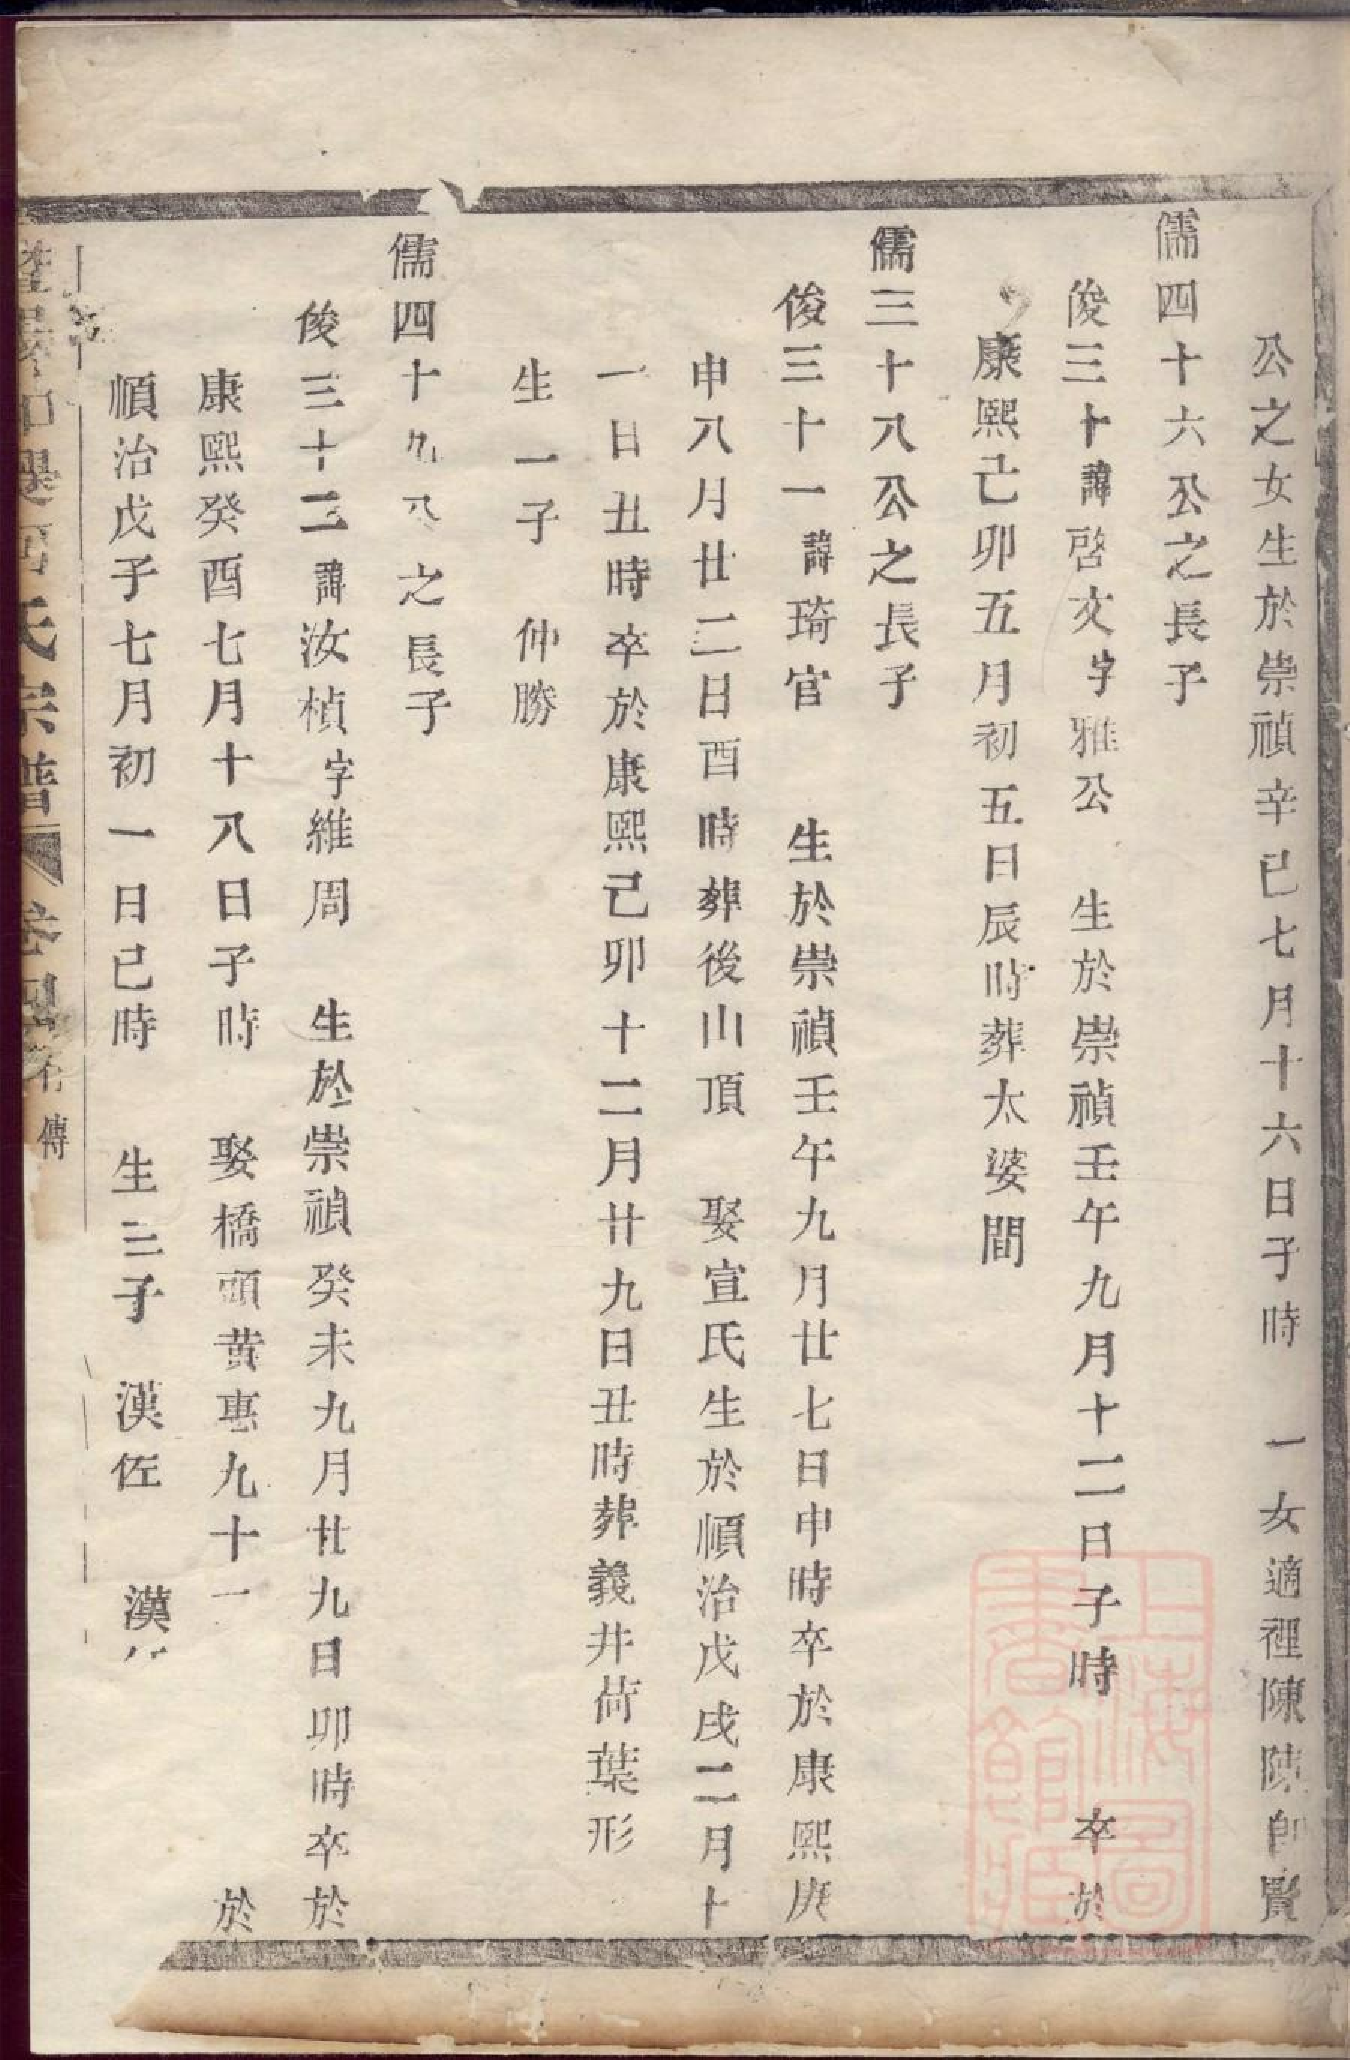 公之女生於崇禎辛巳七月十六日子時　一女適裡陳陳師賢
儒四十六公之長子
俊三十諱啓文字雅公　生於崇禎壬午九月十二日子時　卒於
康熙己卯五月初五日辰時葬太婆間
儒三十八公之長子
俊三十一諱琦官　生於崇禎壬午九月廿七日申時卒於康熙庚
申八月廿二日酉時葬後山頂　娶宣氏生於順治戊戌二月十
一日丑時卒於康熙己卯十二月廿九日丑時葬義井荷葉形
生一子　仲勝
儒四十九公之長子
俊三十二諱汝楨字維周　生於崇禎癸未九月廿九日卯時卒於
康熙癸酉七月十八日子時　娶橋頭黄惠九十一　於
順治戊子七月初一日巳時　生二子　漢佐　漢
氏宗譜　卷四　傳
上海圖書館藏